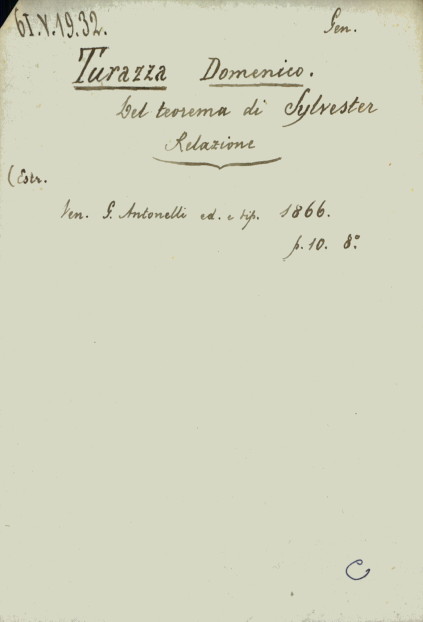 61.V.19.32.
Gen.
Turazza Domenico.
Del teorema di Sylvester
Relazione
(Estr.
Ven. G. Antonelli ed. e tip. 1866.
p. 10. 8.°
C